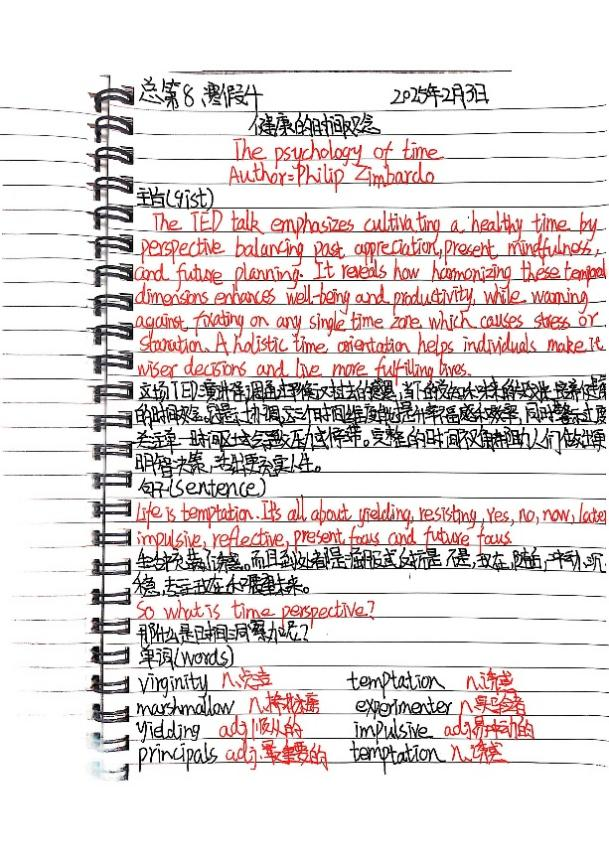 总第8,寒假4 2025年2月3日
健康的时间观念
The psychology of time
Author:Philip Zimbardo
主旨(gist)
The TED talk emphasizes cultivating a healthy time by
perspective balancing past appreciation, present mindfulness,
and future planning. It reveals how harmonizing these temporal
dimensions enhances well-being and productivity, while warning
against fixating on any single time zone which causes stress or
stanation. A holistic time orientation helps individuals make it
wiser decisions and live more fulfilling lives.
这场TED演讲强调通过平衡对过去的感恩,当下的觉知和未来的规划,培养健康
的时间观。 协调这三个时间维度能提升幸福感和效率,同时警示过度
关注单一时间区域会导致压力或停滞。完整的时间取向帮助人们做出更
明智决策,活出更充实人生。
句子(sentence)
Life is temptation. It's all about yielding, resisting, yes, no, now, later
impulsive, reflective, present focus and future focus.
生活充满诱惑。而且到处都是 不是,现在,随后,冲动,沉
稳,
So what is time perspective?
那什么是时间洞察力呢?
单词(words)
virginity n. temptation n.诱惑
marshmallow n.棉花糖 experimenter n.实验者
yielding adj.顺从的 impulsive adj.易冲动的
principals adj.最重要的 temptation n.诱惑